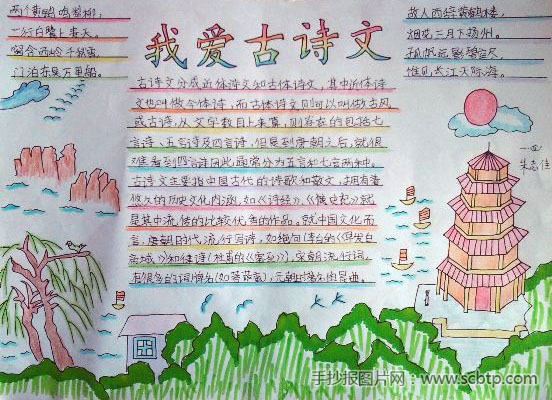 我爱古诗文
两个黄鹂鸣翠柳,
一行白鹭上青天。
窗含西岭千秋雪,
门泊东吴万里船。
故人西辞黄鹤楼,
烟花三月下扬州。
孤帆远影碧空尽,
惟见长江天际流。
古诗文分成近体诗文和古体诗文,其中近体诗
文也叫做今体诗,而古体诗文则可以叫做古风
或古诗,从文字数目上来算,则存在的包括七
言诗、五言诗及四言诗,但是到唐朝之后,就很
难看到四言诗因此通常分为五言和七言两种。
古诗文主要指中国古代的诗歌和散文,拥有着
悠久的历史文化内涵,如《诗经》、《
》就
是其中流传的比较优秀的作品。就中国文化而
言,唐朝时代流行写诗,如绝句(李白的《早发白
帝城》)和律诗(杜甫的《
》),宋朝流行词,
有很多的词牌名(如菩萨蛮),元朝时接为昆曲。
一四
朱志佳
手抄报图片网·www.scbtp.com